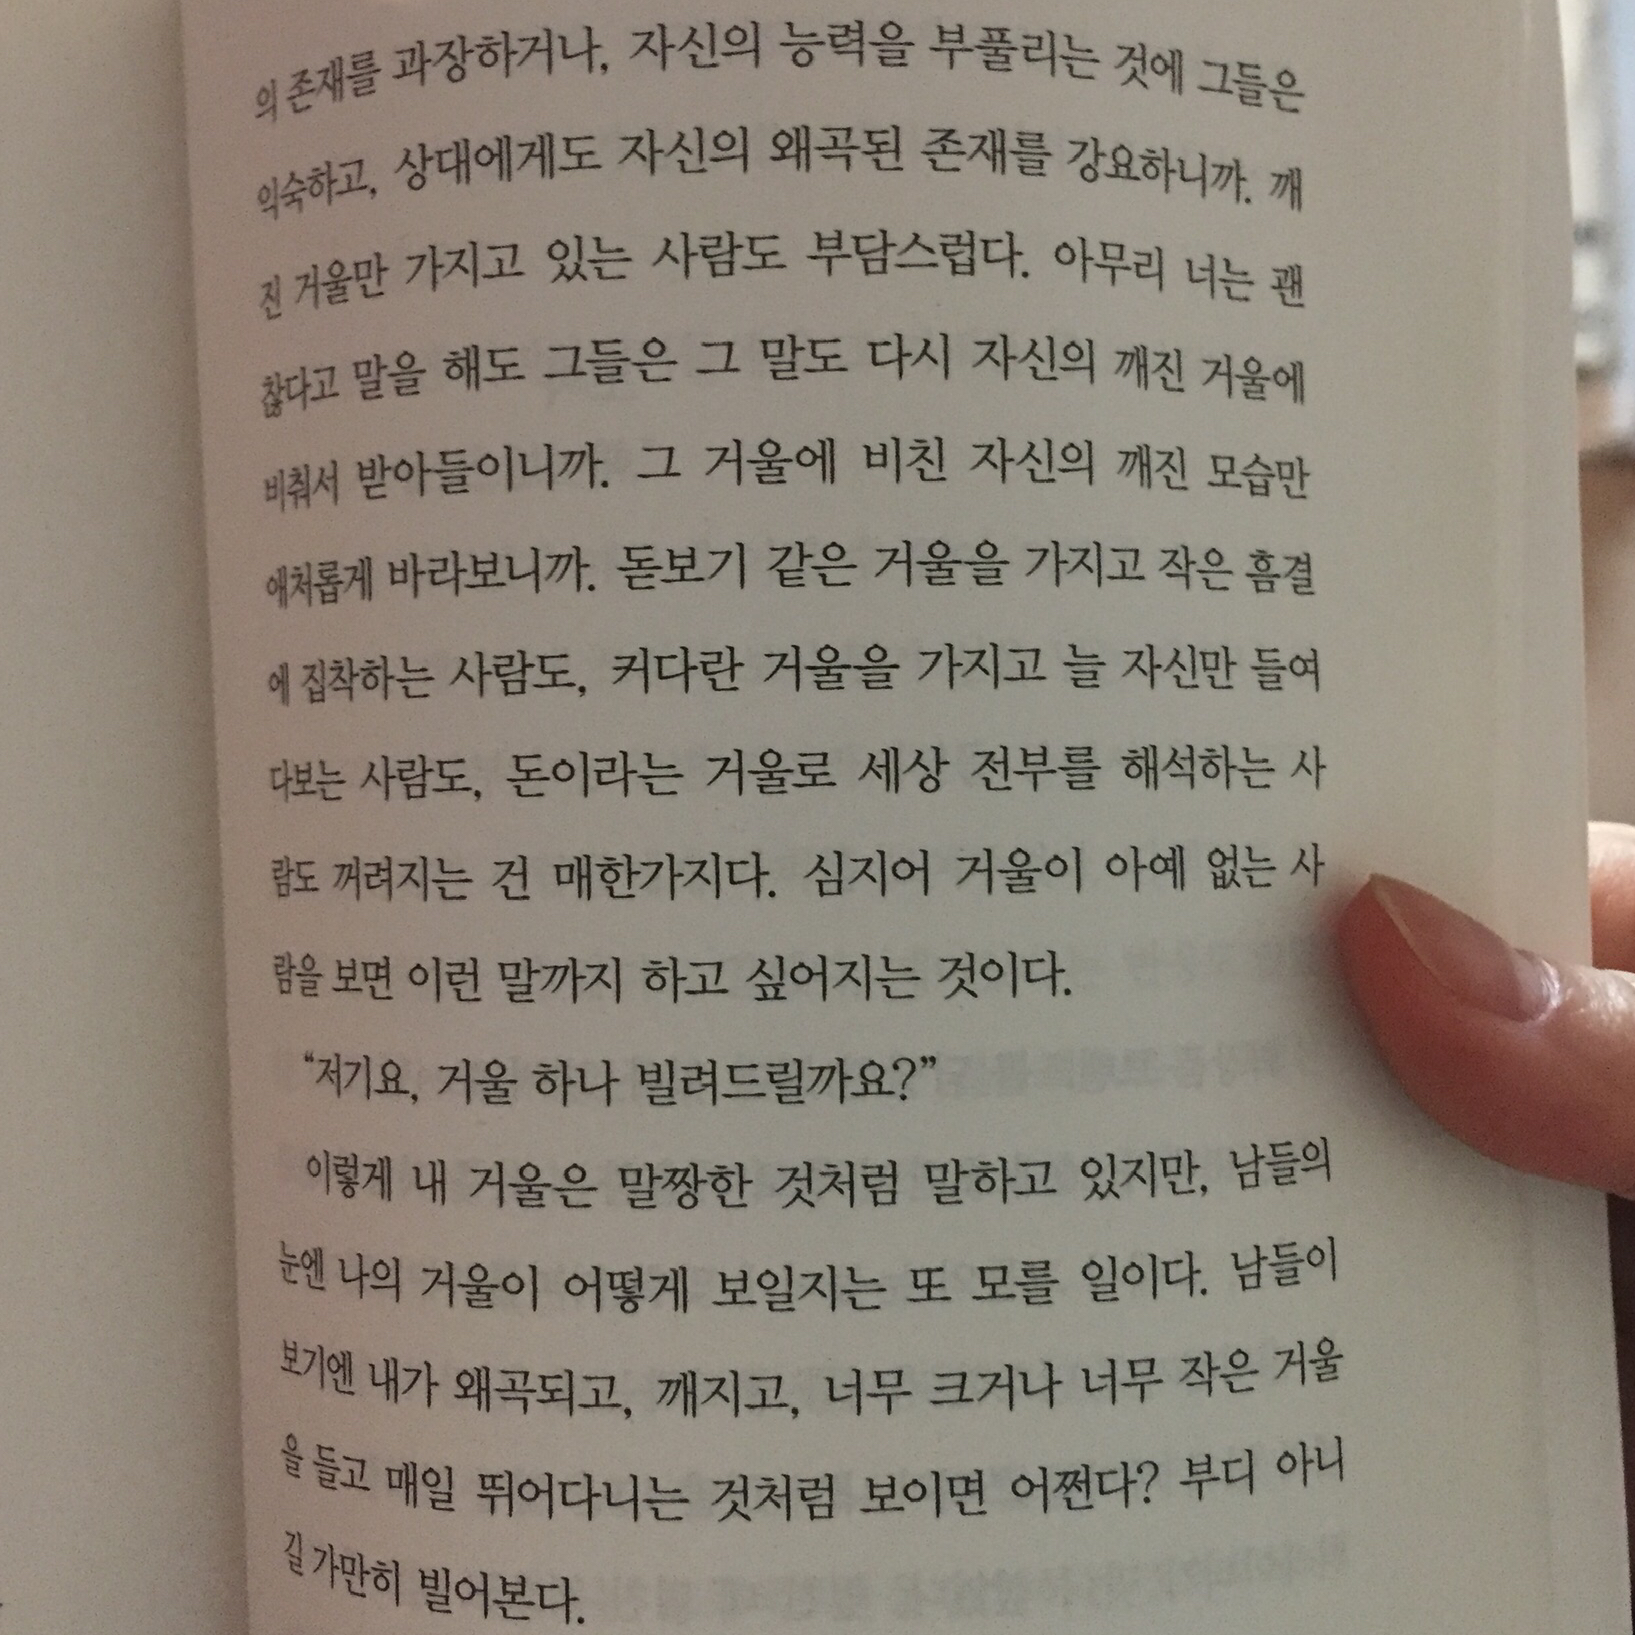 의 존재를 과장하거나, 자신의 능력을 부풀리는 것에 그들은
익숙하고, 상대에게도 자신의 왜곡된 존재를 강요하니까. 깨
진 거울만 가지고 있는 사람도 부담스럽다. 아무리 너는 괜
찮다고 말을 해도 그들은 그 말도 다시 자신의 깨진 거울에
비춰서 받아들이니까. 그 거울에 비친 자신의 깨진 모습만
애처롭게 바라보니까. 돋보기 같은 거울을 가지고 작은 흠결
에 집착하는 사람도, 커다란 거울을 가지고 늘 자신만 들여
다보는 사람도, 돈이라는 거울로 세상 전부를 해석하는 사
람도 꺼려지는 건 매한가지다. 심지어 거울이 아예 없는 사
람을 보면 이런 말까지 하고 싶어지는 것이다.
“저기요, 거울 하나 빌려드릴까요?”
이렇게 내 거울은 말짱한 것처럼 말하고 있지만, 남들의
눈엔 나의 거울이 어떻게 보일지는 또 모를 일이다. 남들이
보기엔 내가 왜곡되고, 깨지고, 너무 크거나 너무 작은 거울
을 들고 매일 뛰어다니는 것처럼 보이면 어쩐다? 부디 아니
길 가만히 빌어본다.